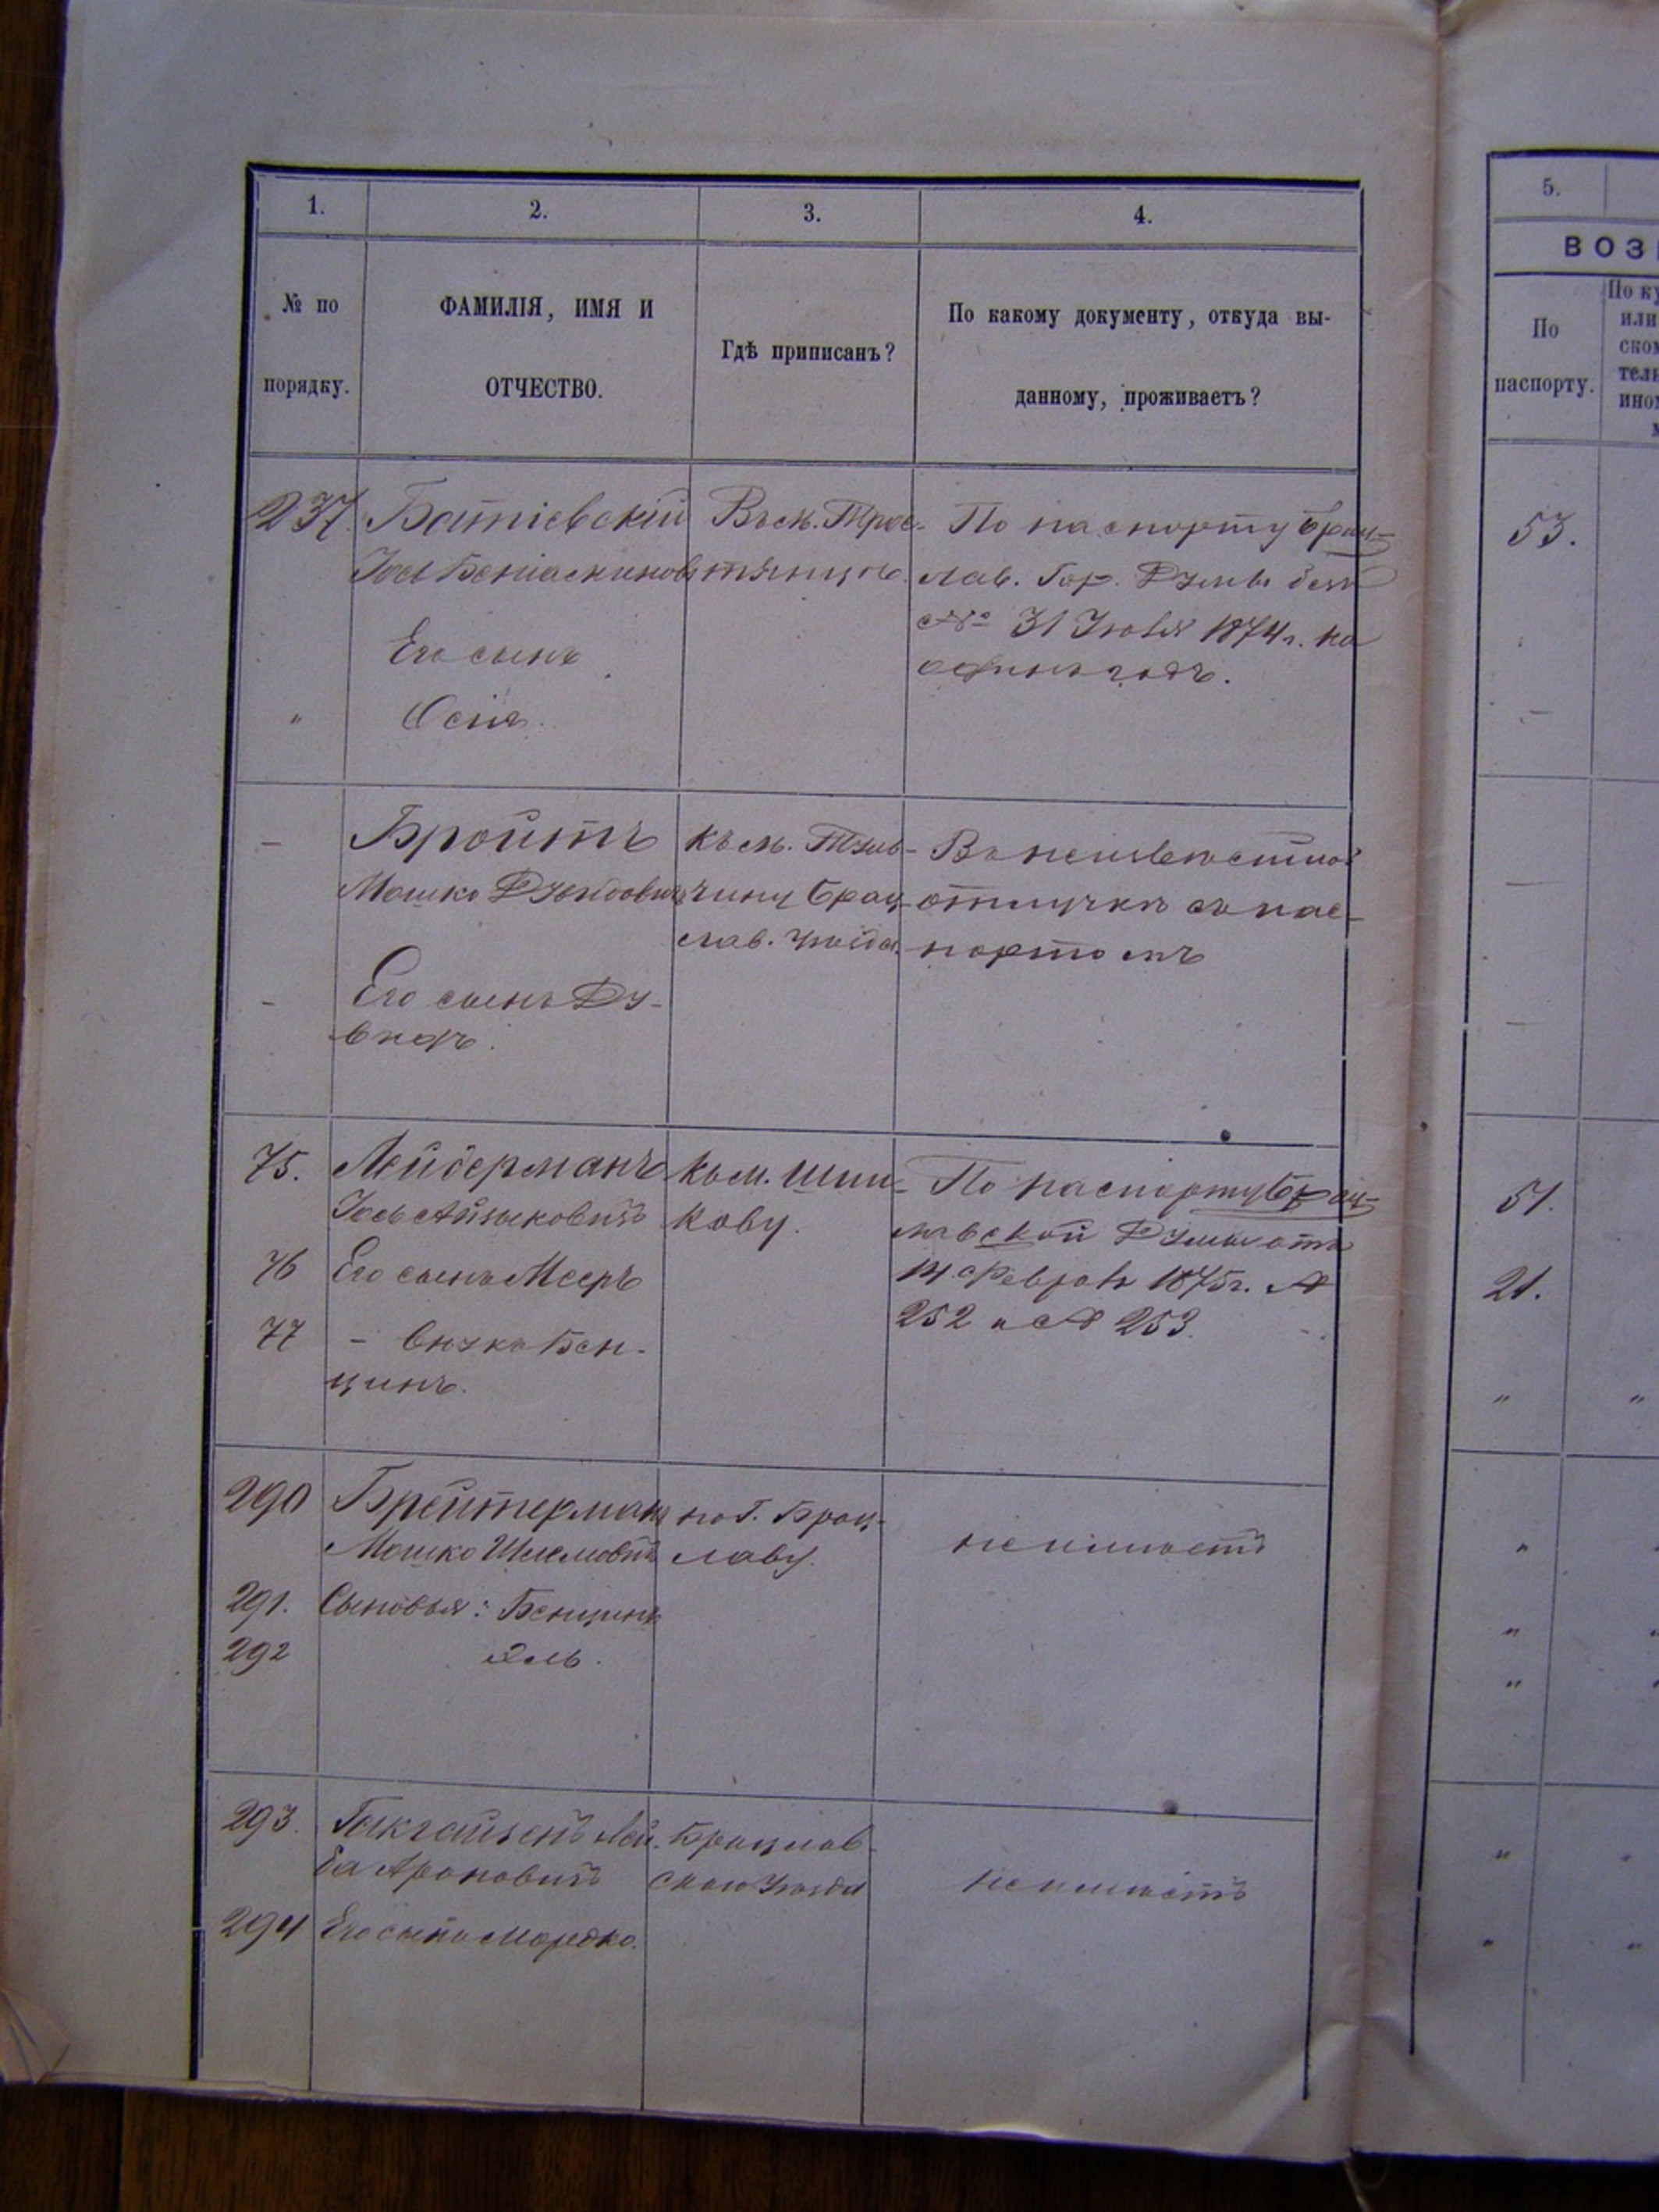 1. 2. 3. 4.
№ по порядку.
ФАМИЛІЯ, ИМЯ И
ОТЧЕСТВО.
Гдѣ приписанъ?
По какому документу, откуда вы-
данному, проживаетъ?
237. Батіевскій
Его сынъ
" Осія.
Въ м. Трос-
тянцѣ.
По паспорту Брац-
лав. Гор. Думы безъ
№ 31 1874 г. на
одинъ годъ.
— Бройтъ
Мошко
- Его сынъ Ду-
видъ.
Къ м. Туль-
чину Брац-
лав. уѣзда.
Въ неизвѣстной
отлучкѣ съ пас-
портомъ
75. Лейдерманъ
Іось Айзыковичъ
76 Его сынъ Мееръ
77 - внукъ Бен-
ціинъ.
Къ м. Шпи-
кову.
По паспорту Брац-
лавской Думы отъ
14 Февраля 1875 г. №
252 и № 253.
290 Брейтерманъ
Мошко Шлемовичъ
291. Сыновья: Бенціинъ
292
по г. Брац-
лаву.
неимѣетъ
293. Лей-
ба Ароновичъ
294 Его сынъ Мордко.
Брацлав-
скаго уѣзда
неимѣетъ
5.
ВОЗ
По
паспорту.
По ку
или
ском
тель
ином
53.
—
—
—
51.
21.
" "
"
"
"
"
" "